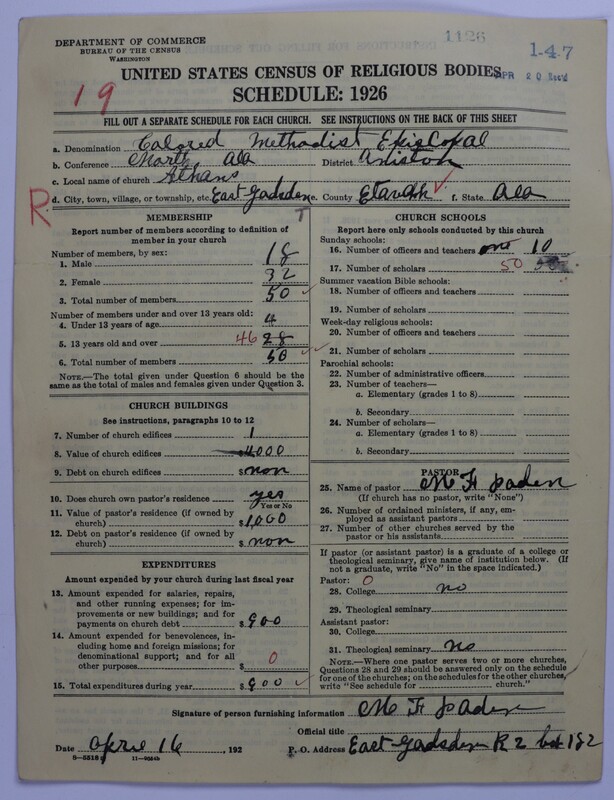 1126
DEPARTMENT OF COMMERCE
BUREAU OF THE CENSUS
WASHINGTON
1-47
UNITED STATES CENSUS OF RELIGIOUS BODIES
APR 20 Rec'd
19
SCHEDULE: 1926
FILL OUT A SEPARATE SCHEDULE FOR EACH CHURCH. SEE INSTRUCTIONS ON THE BACK OF THIS SHEET
a. Denomination Colored Methodist Episcopal
b. Conference North Ala District Aniston
c. Local name of church Athans
R
d. City, town, village, or township, etc. East Gadsden e. County Etawah f. State Ala
MEMBERSHIP
Report number of members according to definition of
member in your church
Number of members, by sex:
1. Male 18
2. Female 32
3. Total number of members 50
Number of members under and over 13 years old:
4. Under 13 years of age 4
5. 13 years old and over 46 28
6. Total number of members 50
NOTE.—The total given under Question 6 should be
the same as the total of males and females given under Question 3.
CHURCH BUILDINGS
See instructions, paragraphs 10 to 12
7. Number of church edifices 1
8. Value of church edifices 4000
9. Debt on church edifices $ non
10. Does church own pastor's residence yes
Yes or No
11. Value of pastor's residence (if owned by
church) $ 1,000
12. Debt on pastor's residence (if owned by
church) $ non
EXPENDITURES
Amount expended by your church during last fiscal year
13. Amount expended for salaries, repairs,
and other running expenses; for im-
provements or new buildings; and for
payments on church debt $ 900
14. Amount expended for benevolences, in-
cluding home and foreign missions; for
denominational support; and for all
other purposes $ 0
15. Total expenditures during year $ 900
CHURCH SCHOOLS
Report here only schools conducted by this church
Sunday schools:
16. Number of officers and teachers one 10
17. Number of scholars 50
Summer vacation Bible schools:
18. Number of officers and teachers
19. Number of scholars
Week-day religious schools:
20. Number of officers and teachers
21. Number of scholars
Parochial schools:
22. Number of administrative officers
23. Number of teachers—
a. Elementary (grades 1 to 8)
b. Secondary
24. Number of scholars—
a. Elementary (grades 1 to 8)
b. Secondary
PASTOR
25. Name of pastor M F
(If church has no pastor, write "None")
26. Number of ordained ministers, if any, em-
ployed as assistant pastors
27. Number of other churches served by the
pastor or his assistants
If pastor (or assistant pastor) is a graduate of a college or
theological seminary, give name of institution below. (If
not a graduate, write "No" in the space indicated.)
Pastor: 0
28. College no
29. Theological seminary
Assistant pastor:
30. College
31. Theological seminary no
NOTE.—Where one pastor serves two or more churches,
Questions 28 and 29 should be answered only on the schedule
for one of the churches; on the schedules for the other churches,
write "See schedule for church."
Signature of person furnishing information M F
Official title
Date April 16, 192 P. O. Address East Gadsden R 2 box 182
8-5518 11-9554b